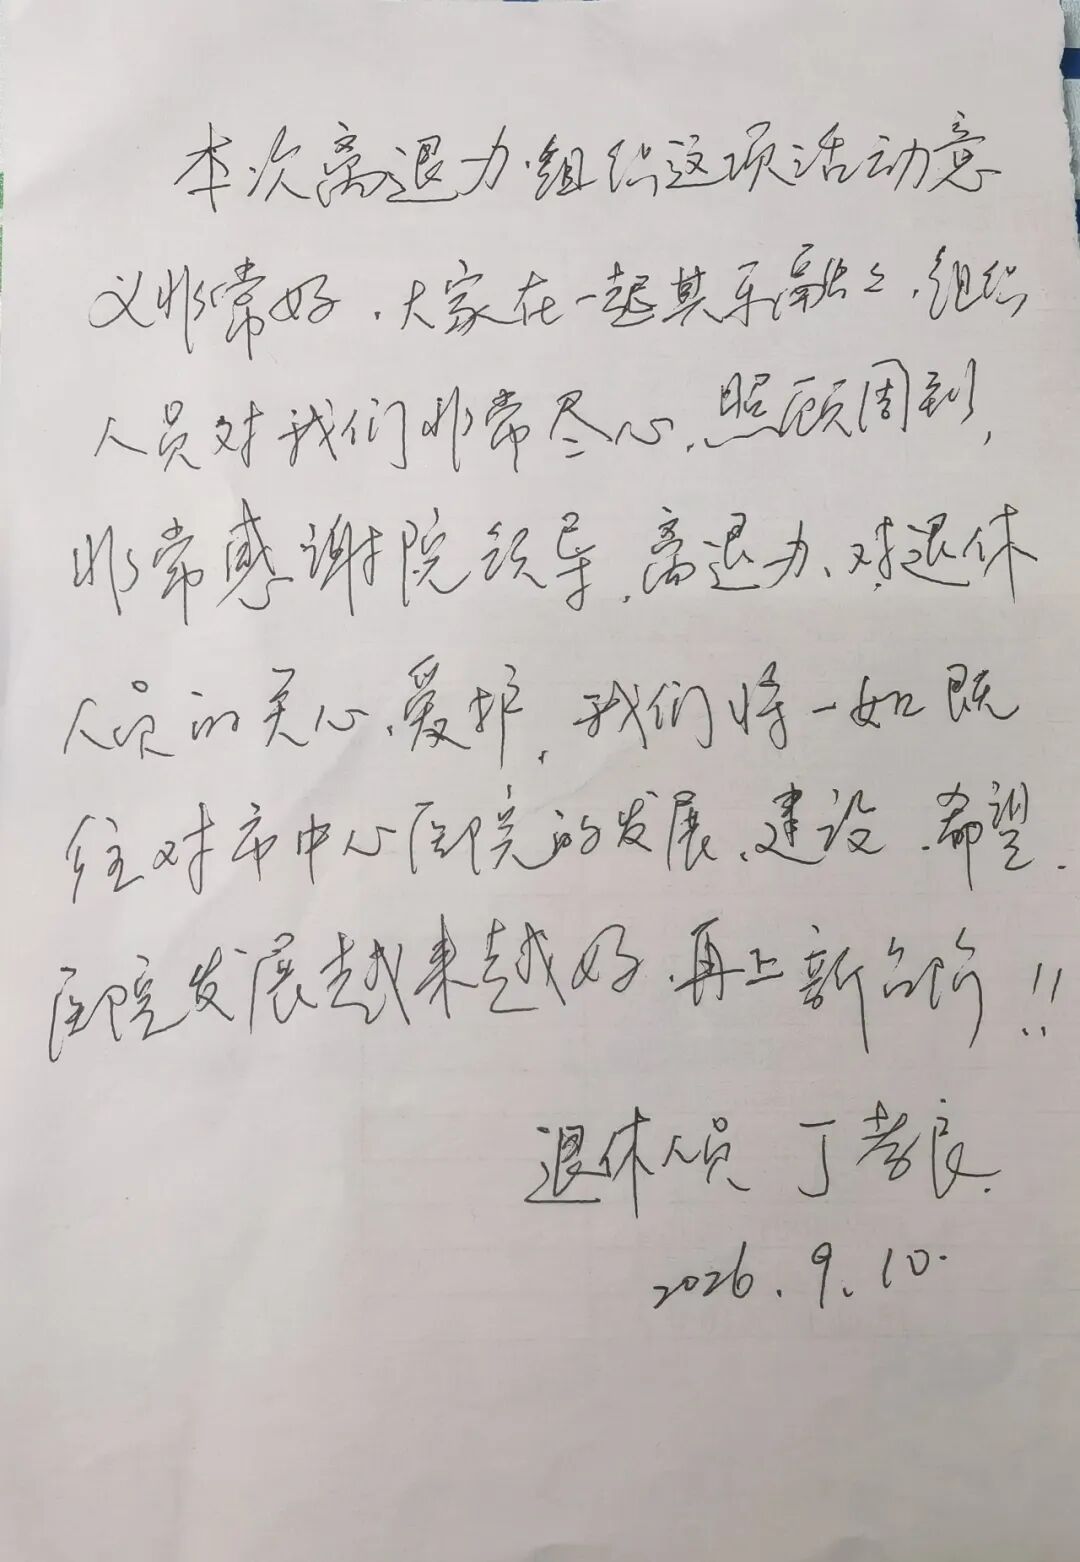 本次离退办组织这项活动意
义非常好，大家在一起其乐融々，组织
人员对我们非常尽心，照顾周到，
非常感谢院领导，离退办、对退休
人员的关心、爱护，我们将一如既
往对市中心医院的发展、建设，希望
医院发展越来越好，再上新台阶！！
退休人员 丁孝良
2026.9.10.